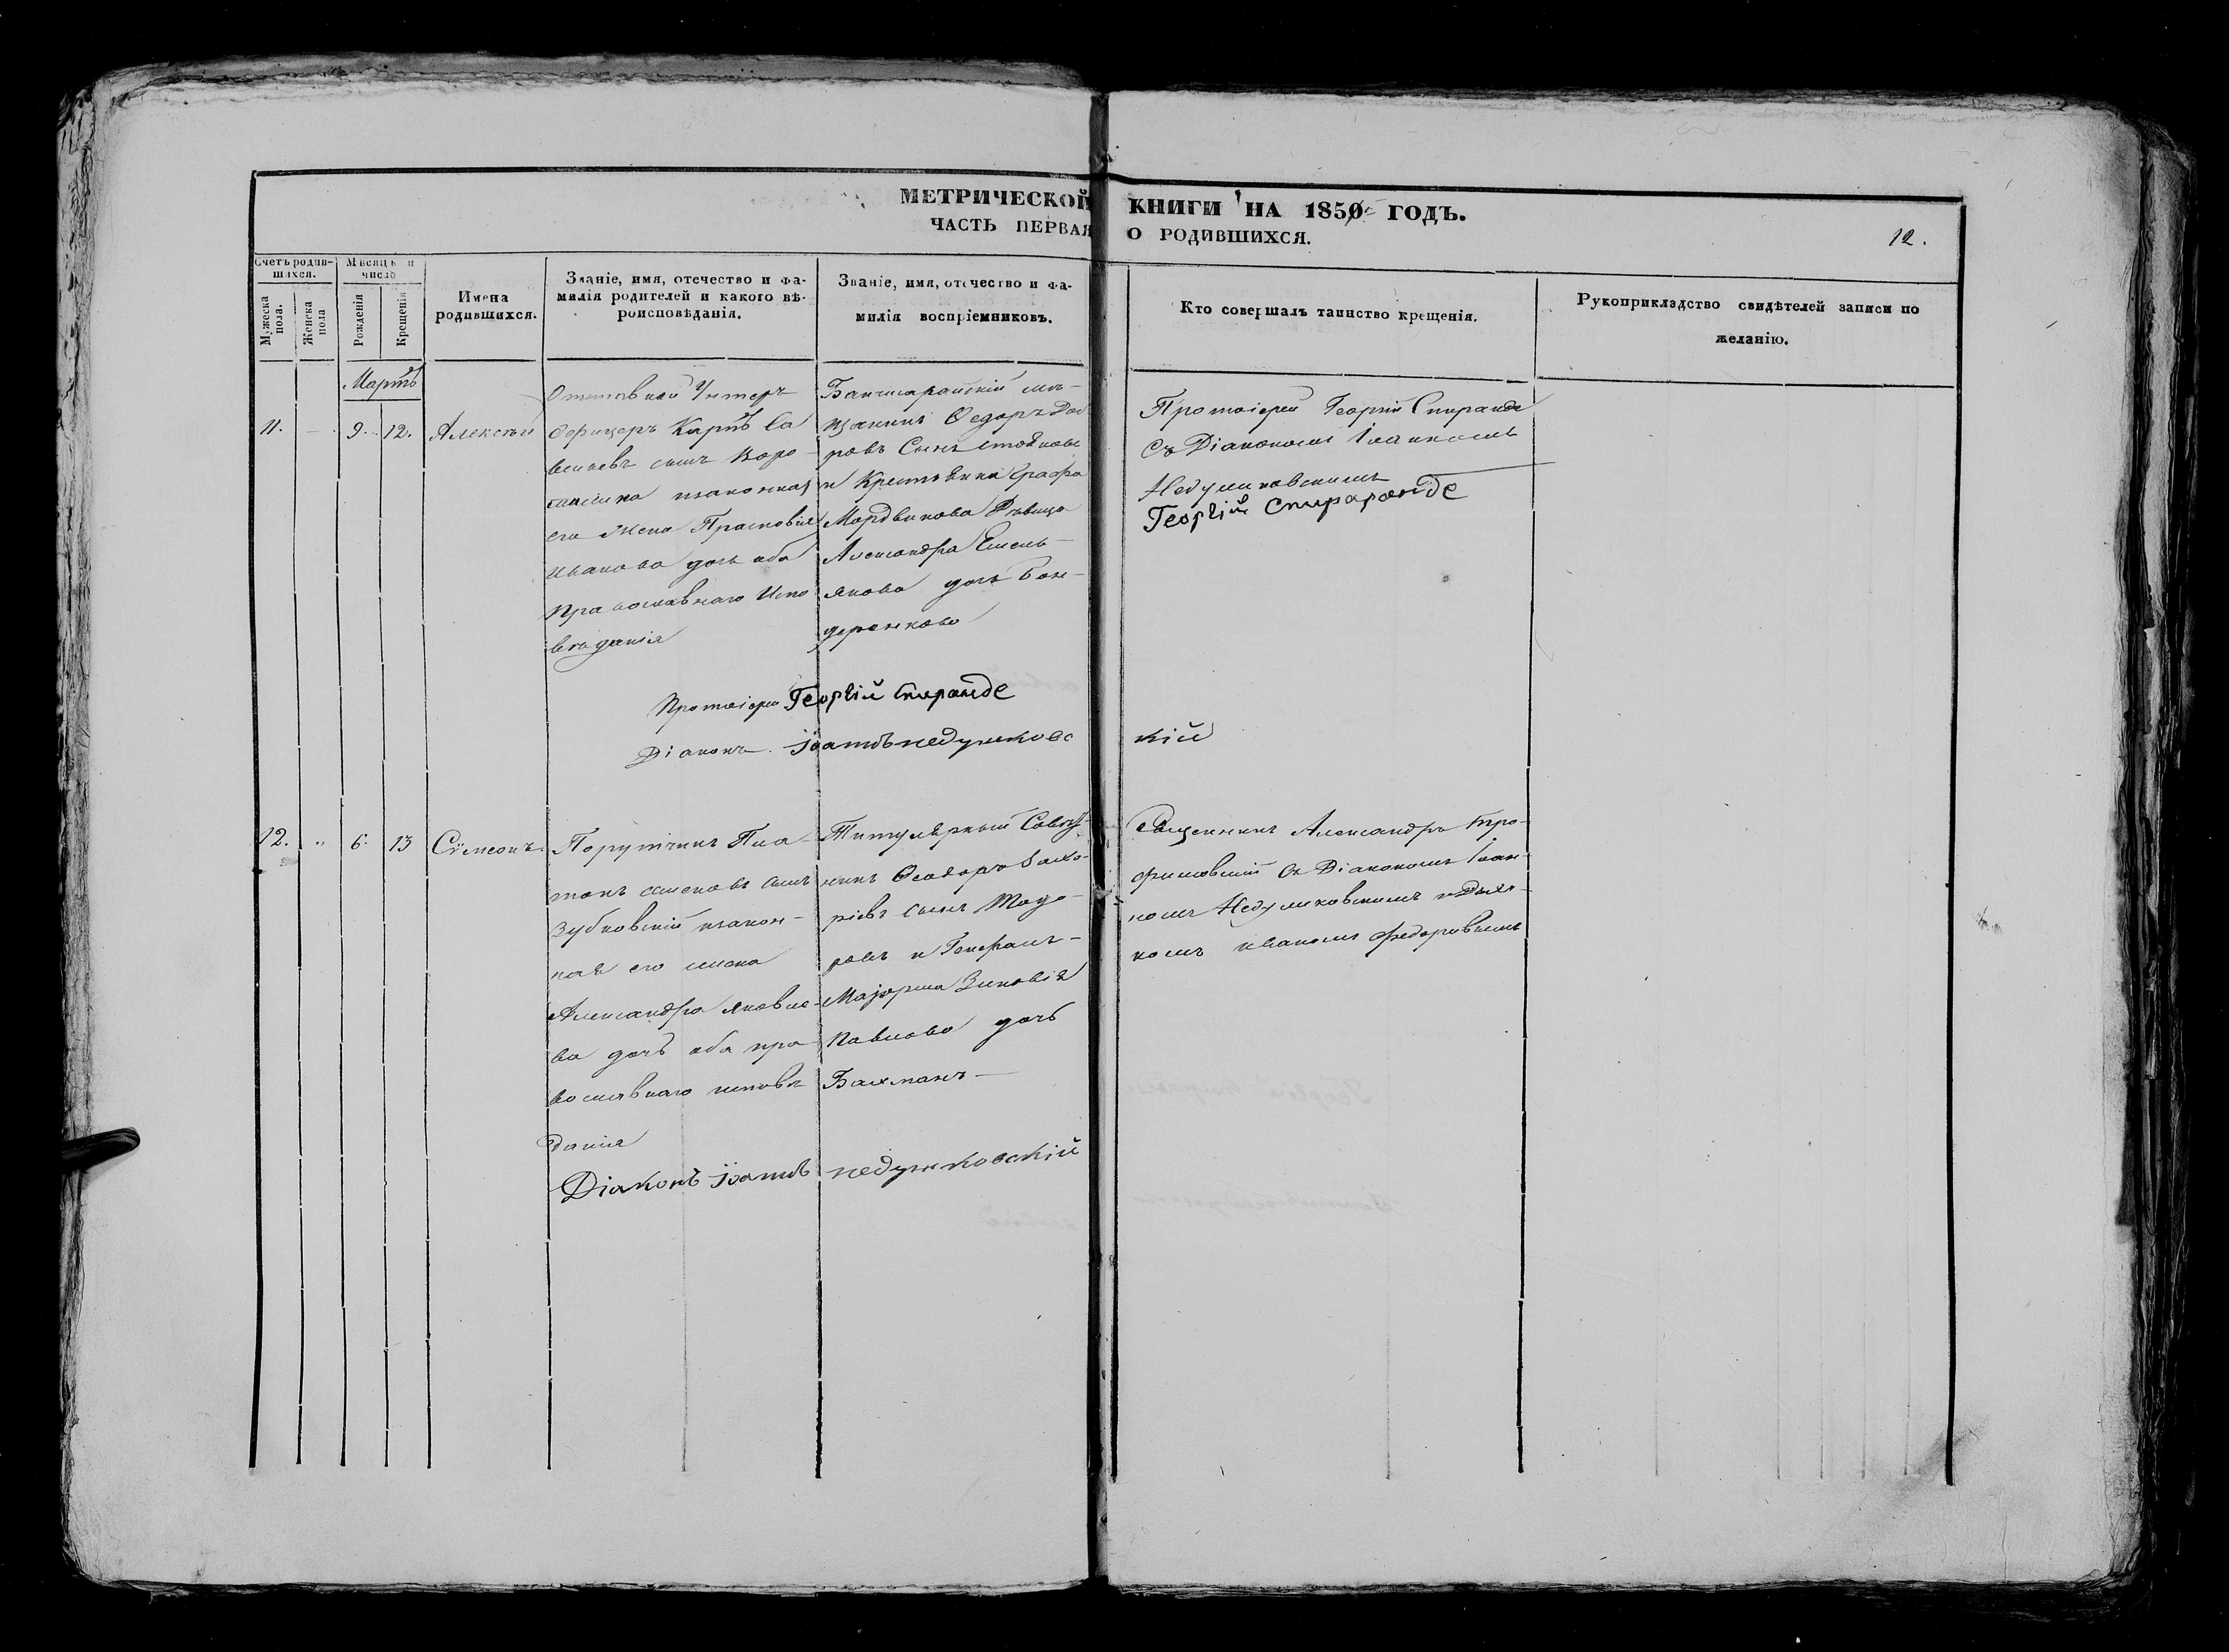 МЕТРИЧЕСКОЙ КНИГИ НА 1850 ГОДЪ.
ЧАСТЬ ПЕРВАЯ О РОДИВШИХСЯ.
12.
Счетъ родив-
шихся.
Мужеска
пола.
Женска
пола
Мѣсяцъ и
число
Рожденія
Крещенія
Имена
родившихся.
Званіе, имя, отечество и фа-
милія родителей и какого вѣ-
роисповѣданія.
Званіе, имя, отечество и фа-
милія воспріемниковъ.
Кто совершалъ таинство крещенія.
Рукоприкладство свидѣтелей записи по
желанію.
Мартъ
11.
9.
12.
Алексѣй
Отставной Унтеръ
Офицеръ Карпъ Са
вельевъ сынъ Коро
изаконная
его Жена Прасковія
Иванова дочь оба
Православнаго Испо
вѣданія
Бахчисарайскій мѣ-
щанинъ Ѳедоръ
ровъ Сынъ Стойновъ
и Крестьянка Графа
Мордвинова Дѣвица
Александра Емель-
янова дочь Бон-
даренкова
Протоіерей Георгій Спиранде
Съ Діакономъ Іоанномъ
Недумковскимъ
Георгій Спиранде
Протоіерей Георгій Спиранде
Діаконъ Іоаннъ Недумковскій
12.
"
6.
13
Сѵмеонъ.
Порутчикъ Пла-
тонъ Семеновъ сынъ
Зубковскій изакон-
ная его жена
Александра Яковле-
ва дочь оба пра-
вославнаго исповѣ
данія
Титулярный Совѣт-
никъ Ѳеодоръ Захо-
ріевъ сынъ Тодо-
ровъ и Генералъ-
Маіорша Зиновія
Павлова дочь
Бахманъ
Священникъ Александръ Тро-
фимовскій Съ Діакономъ Іоан-
номъ Недумковскимъ и Дьяч-
комъ Иваномъ Федоровымъ
Діаконъ Іоаннъ Недумковскій